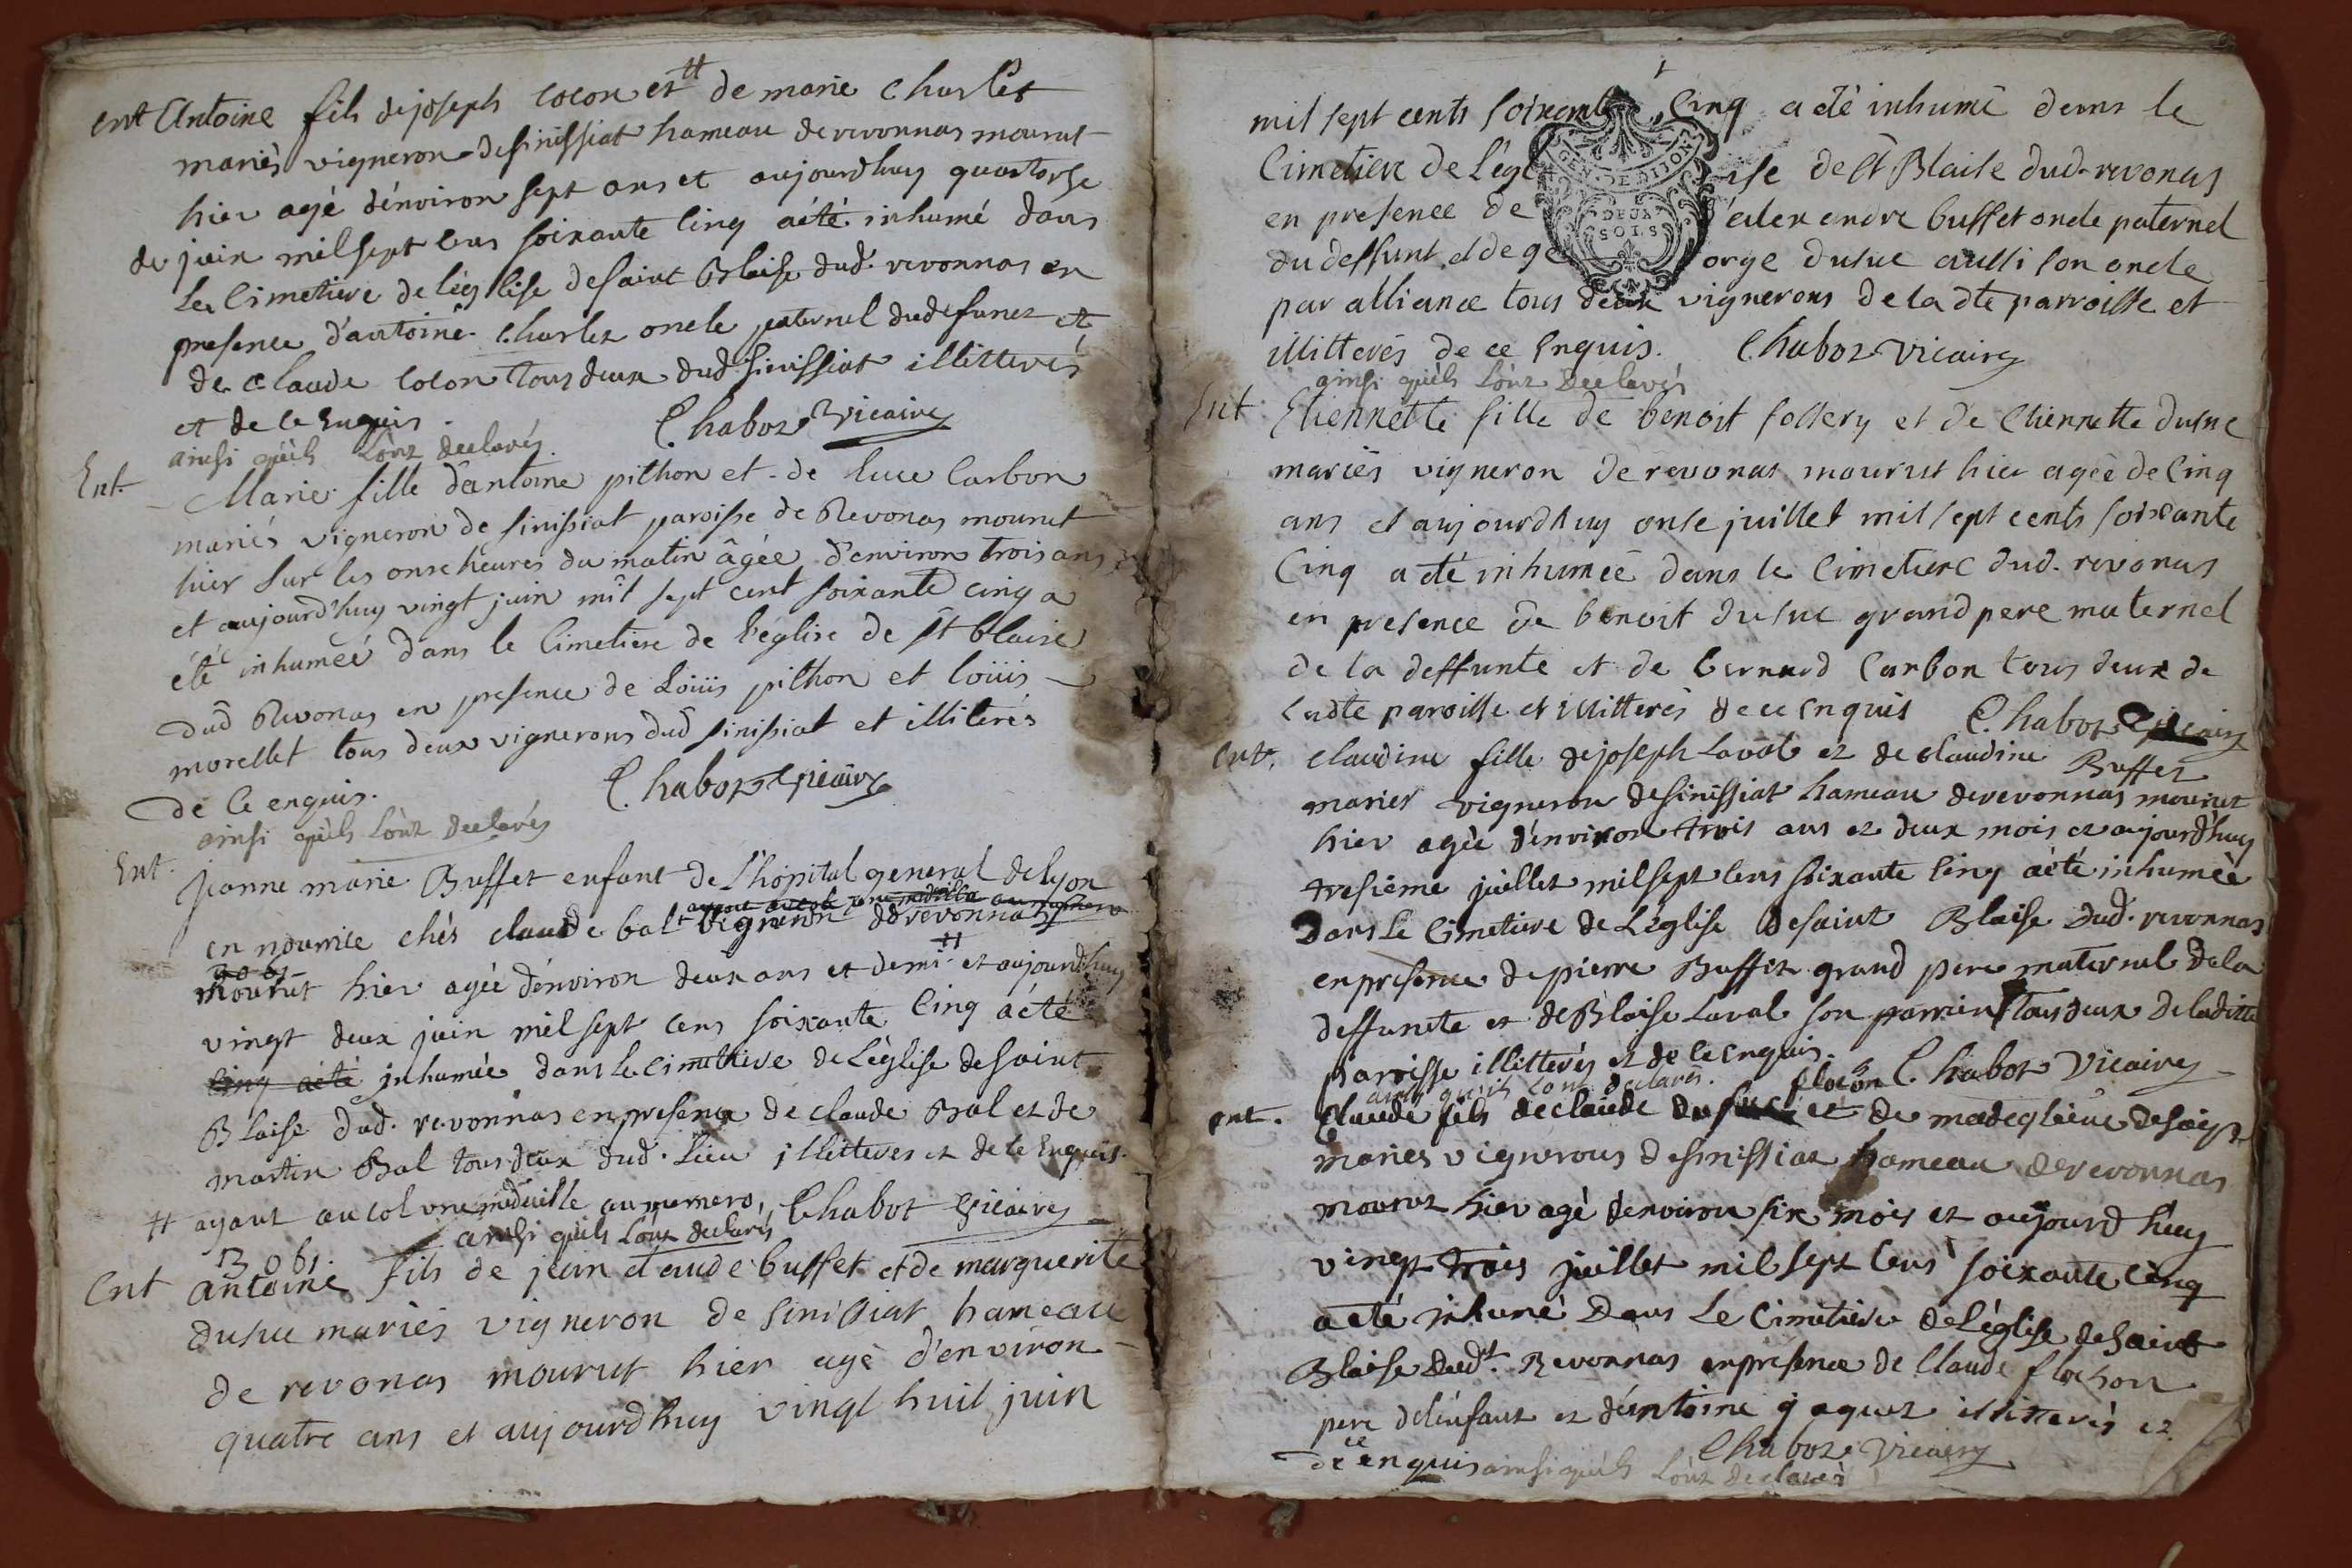 ent Antoine fils de joseph cocon et # de marie Charlet
mariés vigneron de sinissiat hameau de revonnas mourut
hier agé d'énviron sept ans et aujourdhuy quatorze
de juin mil sept cens soixante cinq a été inhumé dans
le Cimetiere de léglise de saint Blaise dud. revonnas en
presence d'antoine Charlet oncle paternel dud defunct et
de Claude Cocon tous deux dud sinissiat illitterés
et de ce Enquis Chabot Vicaire
ainsi qu'ils l'ònt declarés
Ent. Marie fille d'antoine pithon et de luce Carbon
mariés vigneron de sinissiat paroisse de Revonas mourut
hier sur les onse heures du matin âgée d'environ trois ans
et aujourd'huy vingt juin mil sept cent soixante cinq a
été inhumée dans le Cimetiere de l'église de st blaise
dud Revonas en presence de Loüis pithon et loüis
morellet tous deux vignerons dud sinissiat et illiterés
de Ce enquis. Chabot Vicaire
ainsi qu'ils l'ònt declarés
Ent. Jeanne marie Buffet enfant de l'hôpital general de lyon
ayant au col une médaille au numero
en nourrice chés claude bal vigneron de revonnas
mourut hier agée d'énviron deux ans et demi # et aujourdhuy
vingt deux juin mil sept cens soixante Cinq a été
cinq a été inhumée dans le Cimetiere de L'église de saint
Blaise dud. revonnas en presence de claude Bal et de
martin Bal tous deux dud. Lieu illitteres et de ce Enquis.
# ayant au col une médaille au numero Chabot Vicaire
13061. ainsi qu'ils l'ònt declarés
Ent antoine fils de jean claude buffet et de marguerite
dusuc mariés vigneron de sinissiat hameau
de revonas mourut hier agé d'environ
quatre ans et aujourdhuy vingt huit juin
mil sept cents soixante Cinq a été inhumé dans le
Cimetiere de L'église de st Blaise dud. revonas
GEN. DE DIJON
DEUX SOLS
en presence de d'alexandre buffet oncle paternel
du deffunt et de george dusuc aussi son oncle
par alliance tous deux vignerons de la dte parroisse et
illitterés de ce Enquis. Chabot Vicaire
ainsi qu'ils l'ònt declarés
Ent. Etiennette fille de benoit follery et de Etiennette dusuc
mariés vigneron de revonas mourut hier agée de Cinq
ans et aujourdhuy onse juillet mil sept cents soixante
Cinq a été inhumée dans le Cimetiere dud. revonas
en presence de benoit dusuc grand pere maternel
de la deffunte et de bernard Carbon tous deux de
ladte paroisse et illitterés de ce Enquis Chabot Vicaire
Ent. Claudine fille de joseph Laval et de claudine Buffet
mariés vigneron de sinissiat hameau de revonnas mourut
hier agée d'énviron trois ans et deux mois et aujourd'huy
tresiéme juillet mil sept cens soixante cinq a été inhumée
dans le Cimetiere de L'église de saint Blaise dud. revonnas
en presence de pierre Buffet grand pere maternel de la
deffuncte et de Blaise Laval son parrain tous deux de laditte
parroisse illitterés et de ce Enquis. Chabot Vicaire
ainsi qu'ils l'ont declarés.
flochon
ent. Claude fils de claude et de
mariés vignerons de sinissiat hameau de revonnas
mourut hier agé d'environ six mois et aujourd'huy
vingt trois juillet mil sept cens soixante cinq
a été inhumé dans Le Cimetiere de L'église de saint
Blaise dudt. Revonnas en presence de Claude flochon
pere de l'énfant et d'éantoine jaquet illitterés et
de ce enquis Chabot Vicaire
ainsi qu'ils l'ònt declarés